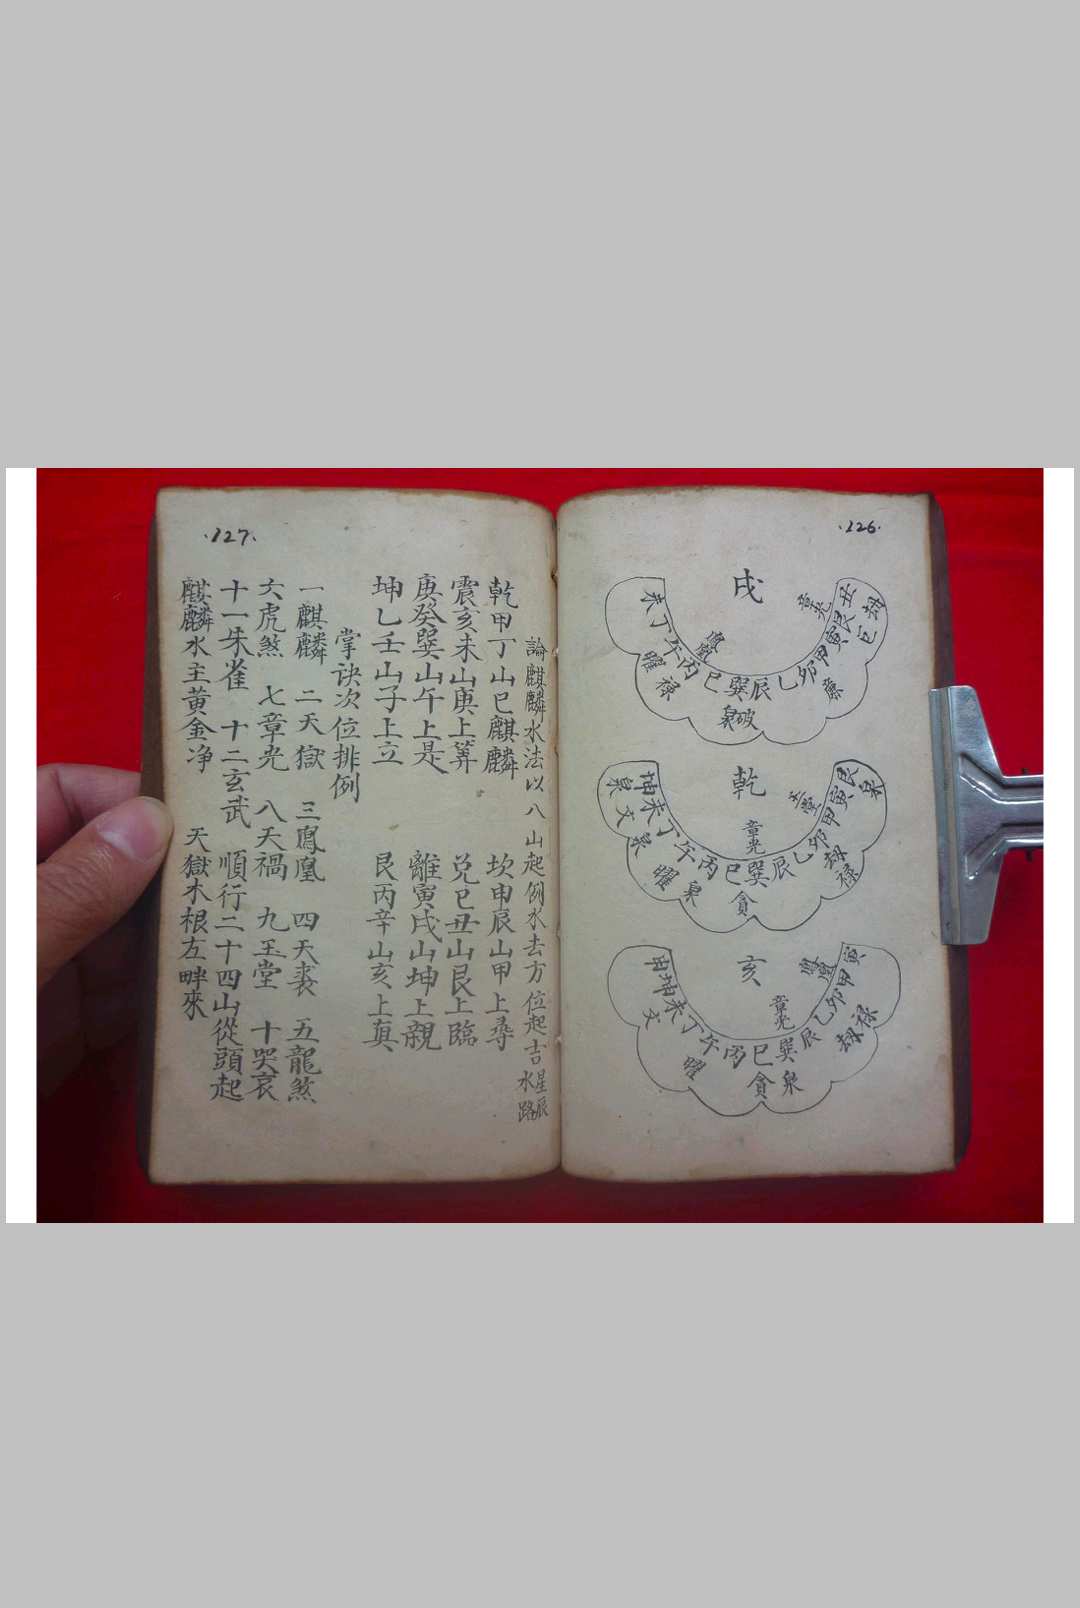 ·126·
戌
丑艮寅甲卯乙辰巽巳丙午丁未
章光
鳳凰
劫
巨
廉
破
泉
禄
曜
乾
艮寅甲卯乙辰巽巳丙午丁未坤
泉
玉堂
章光
劫
禄
貪
泉
曜
泉
文
泉
亥
寅甲卯乙辰巽巳丙午丁未坤申
鳳凰
章光
禄
劫
泉
貪
曜
文
·127·
論麒麟水法以八山起例水去方位起吉星辰水路
乾甲丁山巳麒麟 坎申辰山甲上尋
震亥未山庚上算 兑巳丑山艮上臨
庚癸巽山午上是 離寅戌山坤上親
坤乙壬山子上立 艮丙辛山亥上真
掌诀次位排例
一麒麟 二天獄 三鳳凰 四天裘 五龍煞
六虎煞 七章光 八天禍 九玉堂 十哭哀
十一朱雀 十二玄武 順行二十四山從頭起
麒麟水主黄金净 天獄木根左畔來